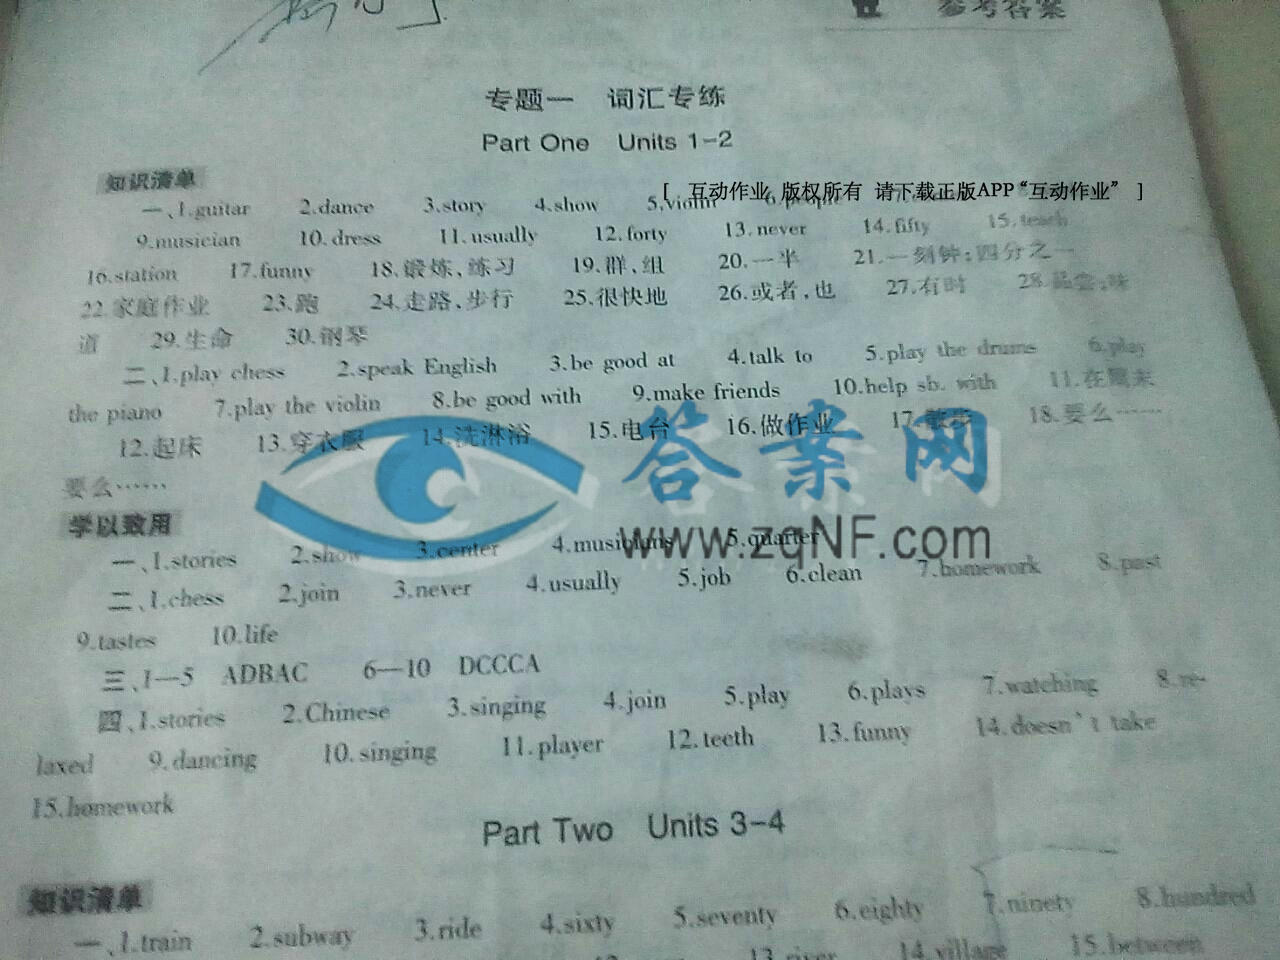 参考答案
专题一 词汇专练
Part One Units 1-2
知识清单
[ 互动作业 版权所有 请下载正版APP“互动作业” ]
一、1.guitar 2.dance 3.story 4.show 5.violin 6.people
9.musician 10.dress 11.usually 12.forty 13.never 14.fifty 15.teach
16.station 17.funny 18.锻炼、练习 19.群、组 20.一半 21.一刻钟；四分之一
22.家庭作业 23.跑 24.走路、步行 25.很快地 26.或者，也 27.有时 28.品尝；味
道 29.生命 30.钢琴
二、1.play chess 2.speak English 3.be good at 4.talk to 5.play the drums 6.play
the piano 7.play the violin 8.be good with 9.make friends 10.help sb. with 11.在周末
12.起床 13.穿衣服 14.洗淋浴 15.电台 16.做作业 17.散步 18.要么……
要么……
答案网
www.zqNF.com
学以致用
一、1.stories 2.show 3.center 4.musicians 5.quarter
二、1.chess 2.join 3.never 4.usually 5.job 6.clean 7.homework 8.past
9.tastes 10.life
三、1—5 ADBAC 6—10 DCCCA
四、1.stories 2.Chinese 3.singing 4.join 5.play 6.plays 7.watching 8.re-
laxed 9.dancing 10.singing 11.player 12.teeth 13.funny 14.doesn't take
15.homework
Part Two Units 3-4
知识清单
一、1.train 2.subway 3.ride 4.sixty 5.seventy 6.eighty 7.ninety 8.hundred
13.river 14.village 15.between